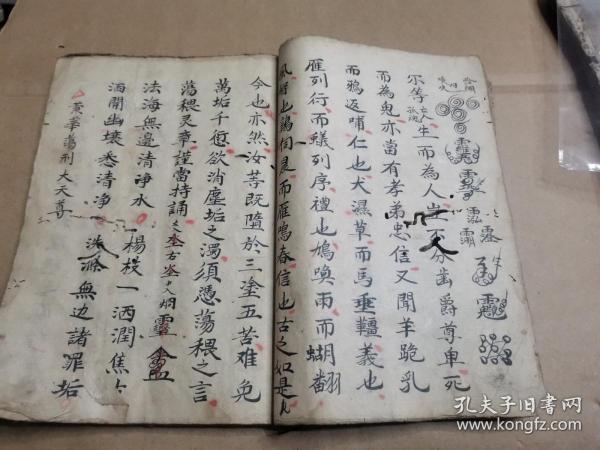 尔等亡人生而為人岂不分齒爵尊卑死
孤魂
而為鬼亦當有孝弟忠信又聞羊跪乳
而鴉返哺仁也犬濕草而馬垂韁義也
雁列行而蟻列序禮也鳩喚雨而蝴翻
風時也鷄伺晨而雁鳴春信也古之如是
今也亦然汝等既墮於三塗五苦难免
萬垢千愆欲消塵垢之濁須憑蕩穢之言
蕩穢灵章謹當持誦
法海無邊清净水
楊枝一洒潤焦
酒開幽壤悉清净
洗滌無边諸罪垢
黄華蕩刑大天尊
孔夫子旧书网
www.kongfz.com